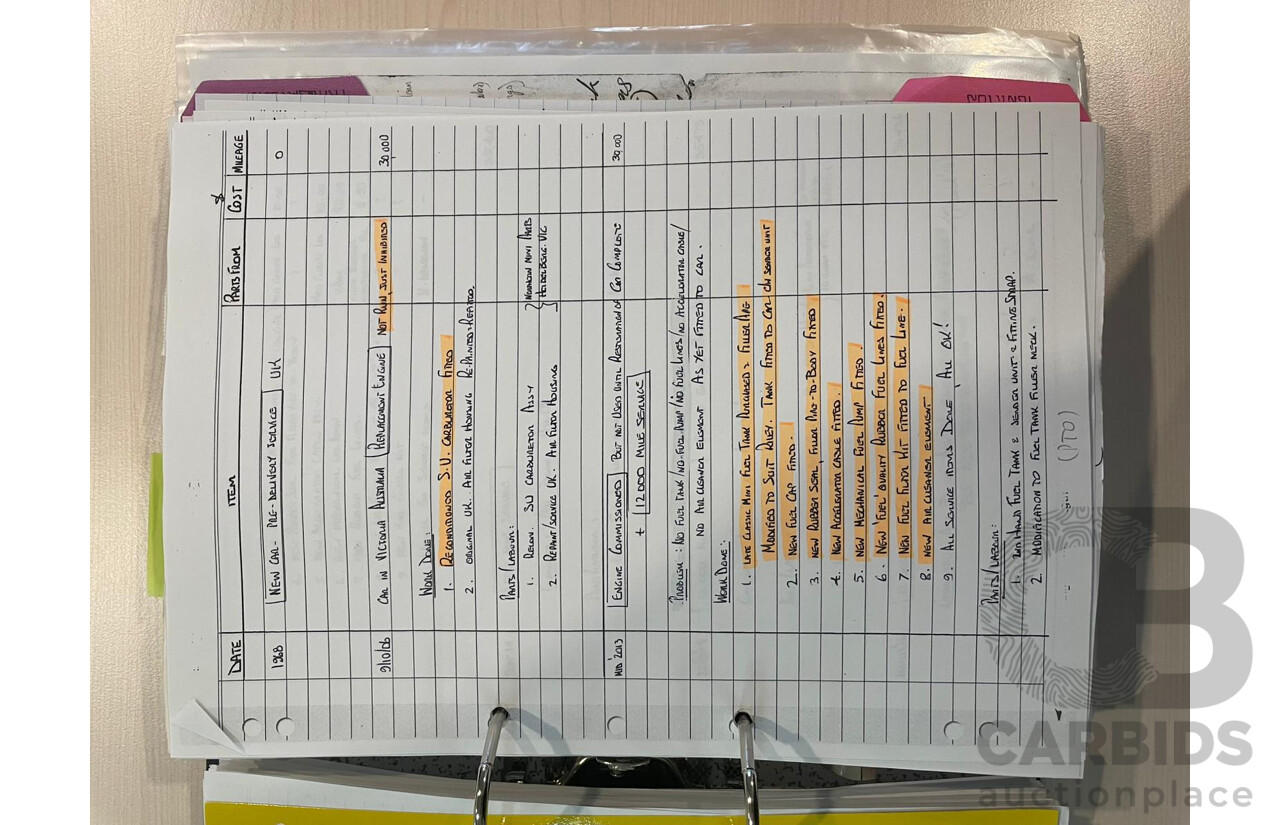 DATE ITEM PARTS FROM $ COST MILEAGE
1968 NEW CAR - PRE-DELIVERY SERVICE UK 0
9/10/06 CAR IN VICTORIA AUSTRALIA REPLACEMENT ENGINE NOT RUN, JUST INHIBITED 30,000
WORK DONE:
1. RECONDITIONED S.U. CARBURETOR FITTED
2. ORIGINAL UK. AIR FILTER HOUSING REPAINTED-REFITTED.
PARTS/LABOUR:
1. RECON. SU CARBURETOR ASSY MINI PARTS
2. REPAINT/SERVICE UK. AIR FILTER HOUSING HEIDELBERG VIC
MID 2013 ENGINE COMMISSIONED BUT NOT USED UNTIL RESTORATION OF CAR COMPLETE 30,000
+ 12000 MILE SERVICE
PROBLEM: NO FUEL TANK/NO-FUEL PUMP/NO FUEL LINES/NO ACCELERATOR CABLE/
NO AIR CLEANER ELEMENT AS YET FITTED TO CAR.
WORK DONE:
1. LATE CLASSIC MINI FUEL TANK PURCHASED & FILLER PIPE
MODIFIED TO SUIT RILEY. TANK FITTED TO CAR SENDER UNIT
2. NEW FUEL CAP FITTED.
3. NEW RUBBER SEAL, FILLER PIPE-TO-BODY FITTED
4. NEW ACCELERATOR CABLE FITTED.
5. NEW MECHANICAL FUEL PUMP FITTED.
6. NEW 'FUEL' QUALITY RUBBER FUEL LINES FITTED.
7. NEW FUEL FILTER KIT FITTED TO FUEL LINE.
8. NEW AIR CLEANER ELEMENT
9. ALL SERVICE ITEMS DONE, ALL OK!
PARTS/LABOUR:
1. 2ND HAND FUEL TANK & SENDER UNIT & FITTING STRAP.
2. MODIFICATION TO FUEL TANK FILLER NECK.
(PTO)
IGNITION
CARBIDS
auctionplace